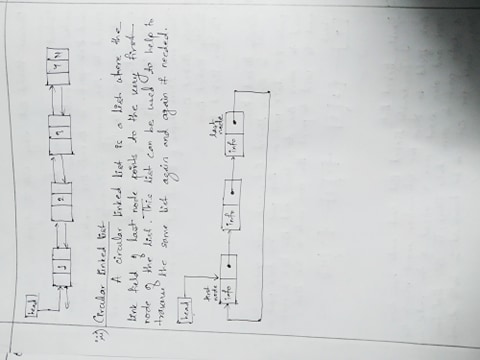 head
1 2 3 4 N
iii) Circular linked list
A circular linked list is a list where the
link field of last node points to the very first
node of the list. This list can be used to help to
traverse the same list again and again if needed.
head
first node
last node
info info info